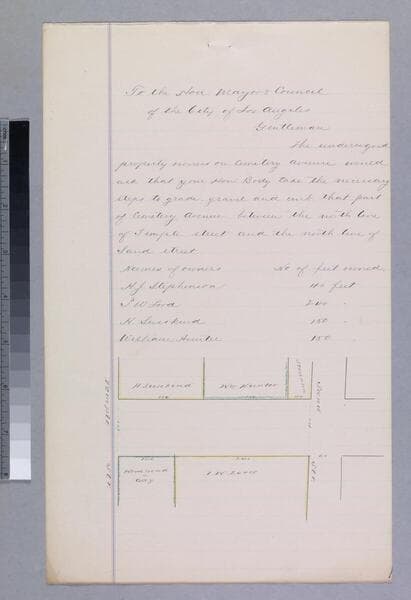 To the Hon Mayor & Council
of the City of Los Angeles
Gentlemen
The undersigned
property owners on Cemetery Avenue would
ask that your Hon Body take the necessary
steps to grade, gravel and curb that part
of Cemetery Avenue between the north line
of Temple street and the north line of
Sand street.
Names of owners No of feet owned
H J Stephenson 40 feet
J W Lord 240 "
H. 150 "
William Hunter 150 "
Wm Hunter
Temple
Sand
Str